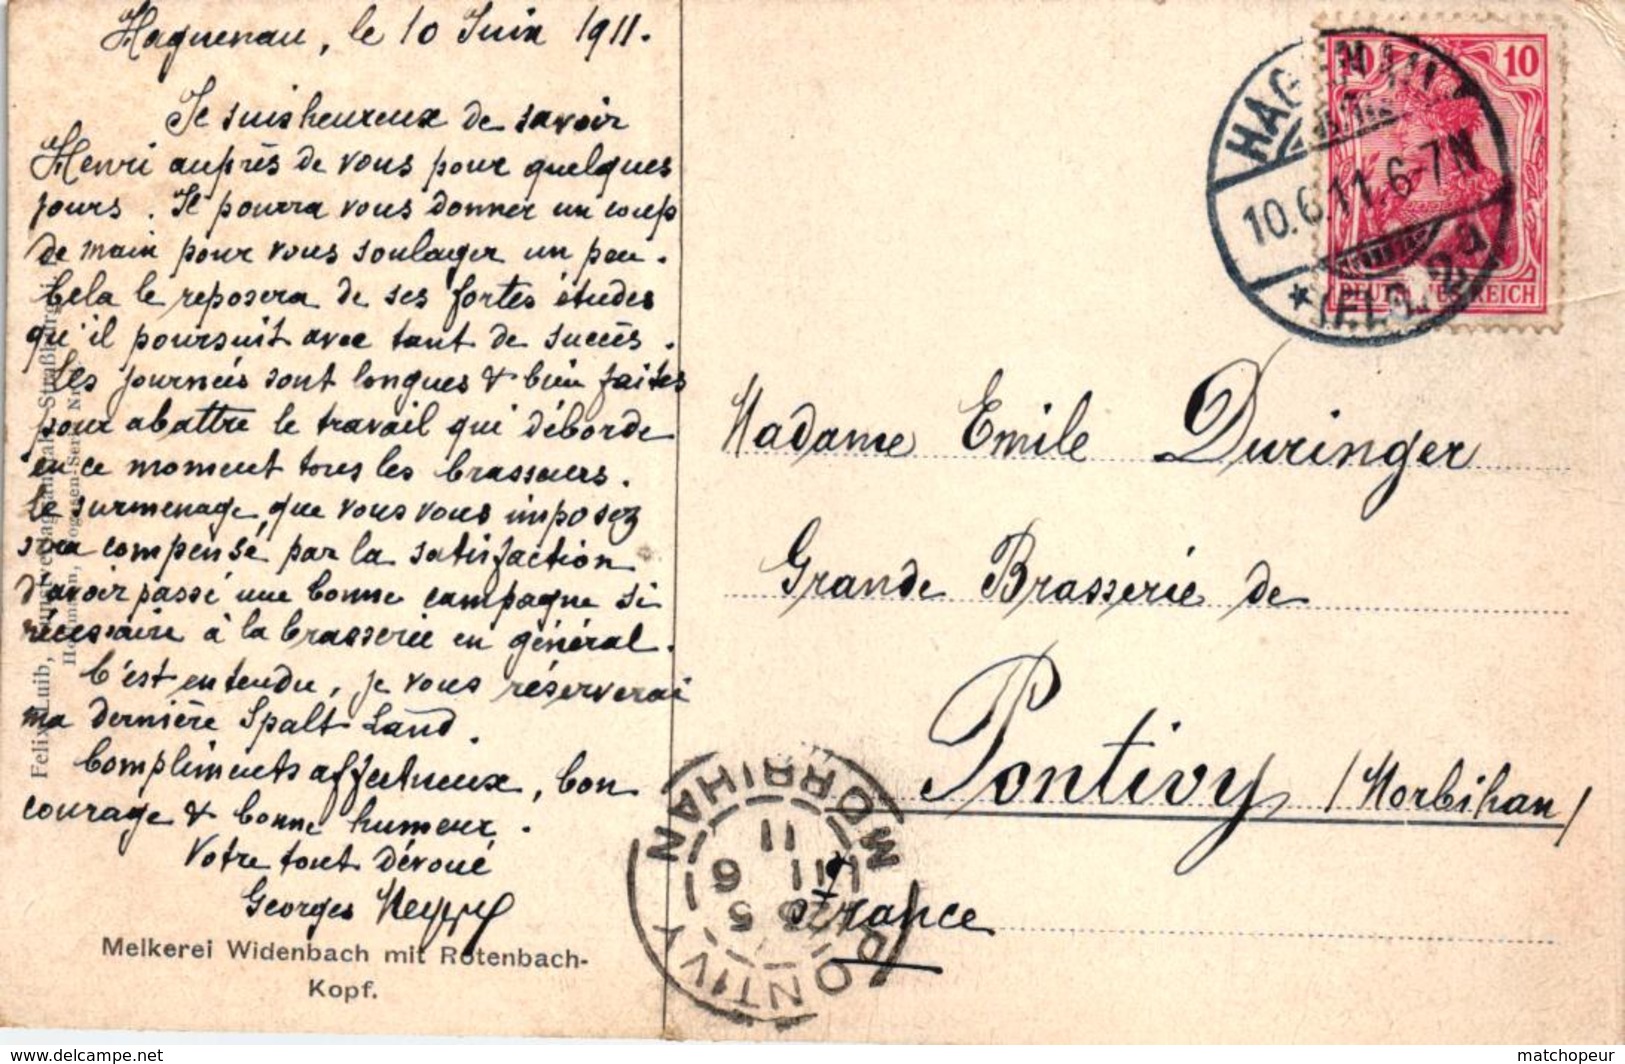 Haguenau, le 10 Juin 1911.
Je suis heureux de savoir
Henri auprès de vous pour quelques
jours. Il pourra vous donner un coup
de main pour vous soulager un peu.
Cela le reposera de ses fortes études
qu'il poursuit avec tant de succès.
Les journées sont longues & bien faites
pour abattre le travail qui déborde
en ce moment tous les brasseurs.
Le surmenage, que vous vous imposez
sera compensé par la satisfaction
d'avoir passé une bonne campagne si
nécessaire à la brasserie en général.
C'est entendu, je vous réserverai
ma dernière Spalt Land.
Compliments affectueux, bon
courage & bonne humeur.
Votre tout dévoué
Georges
Melkerei Widenbach mit Rotenbach-
Kopf.
Felix Luib, Straßburg i.
HAGENAU
10.6.11.6-7N
* (ELS.) 2a
10
DEUTSCHES REICH
Madame Emile Duringer
Grande Brasserie de
Pontivy (Morbihan)
France
PONTIVY
MORBIHAN
11
delcampe.net
matchopeur